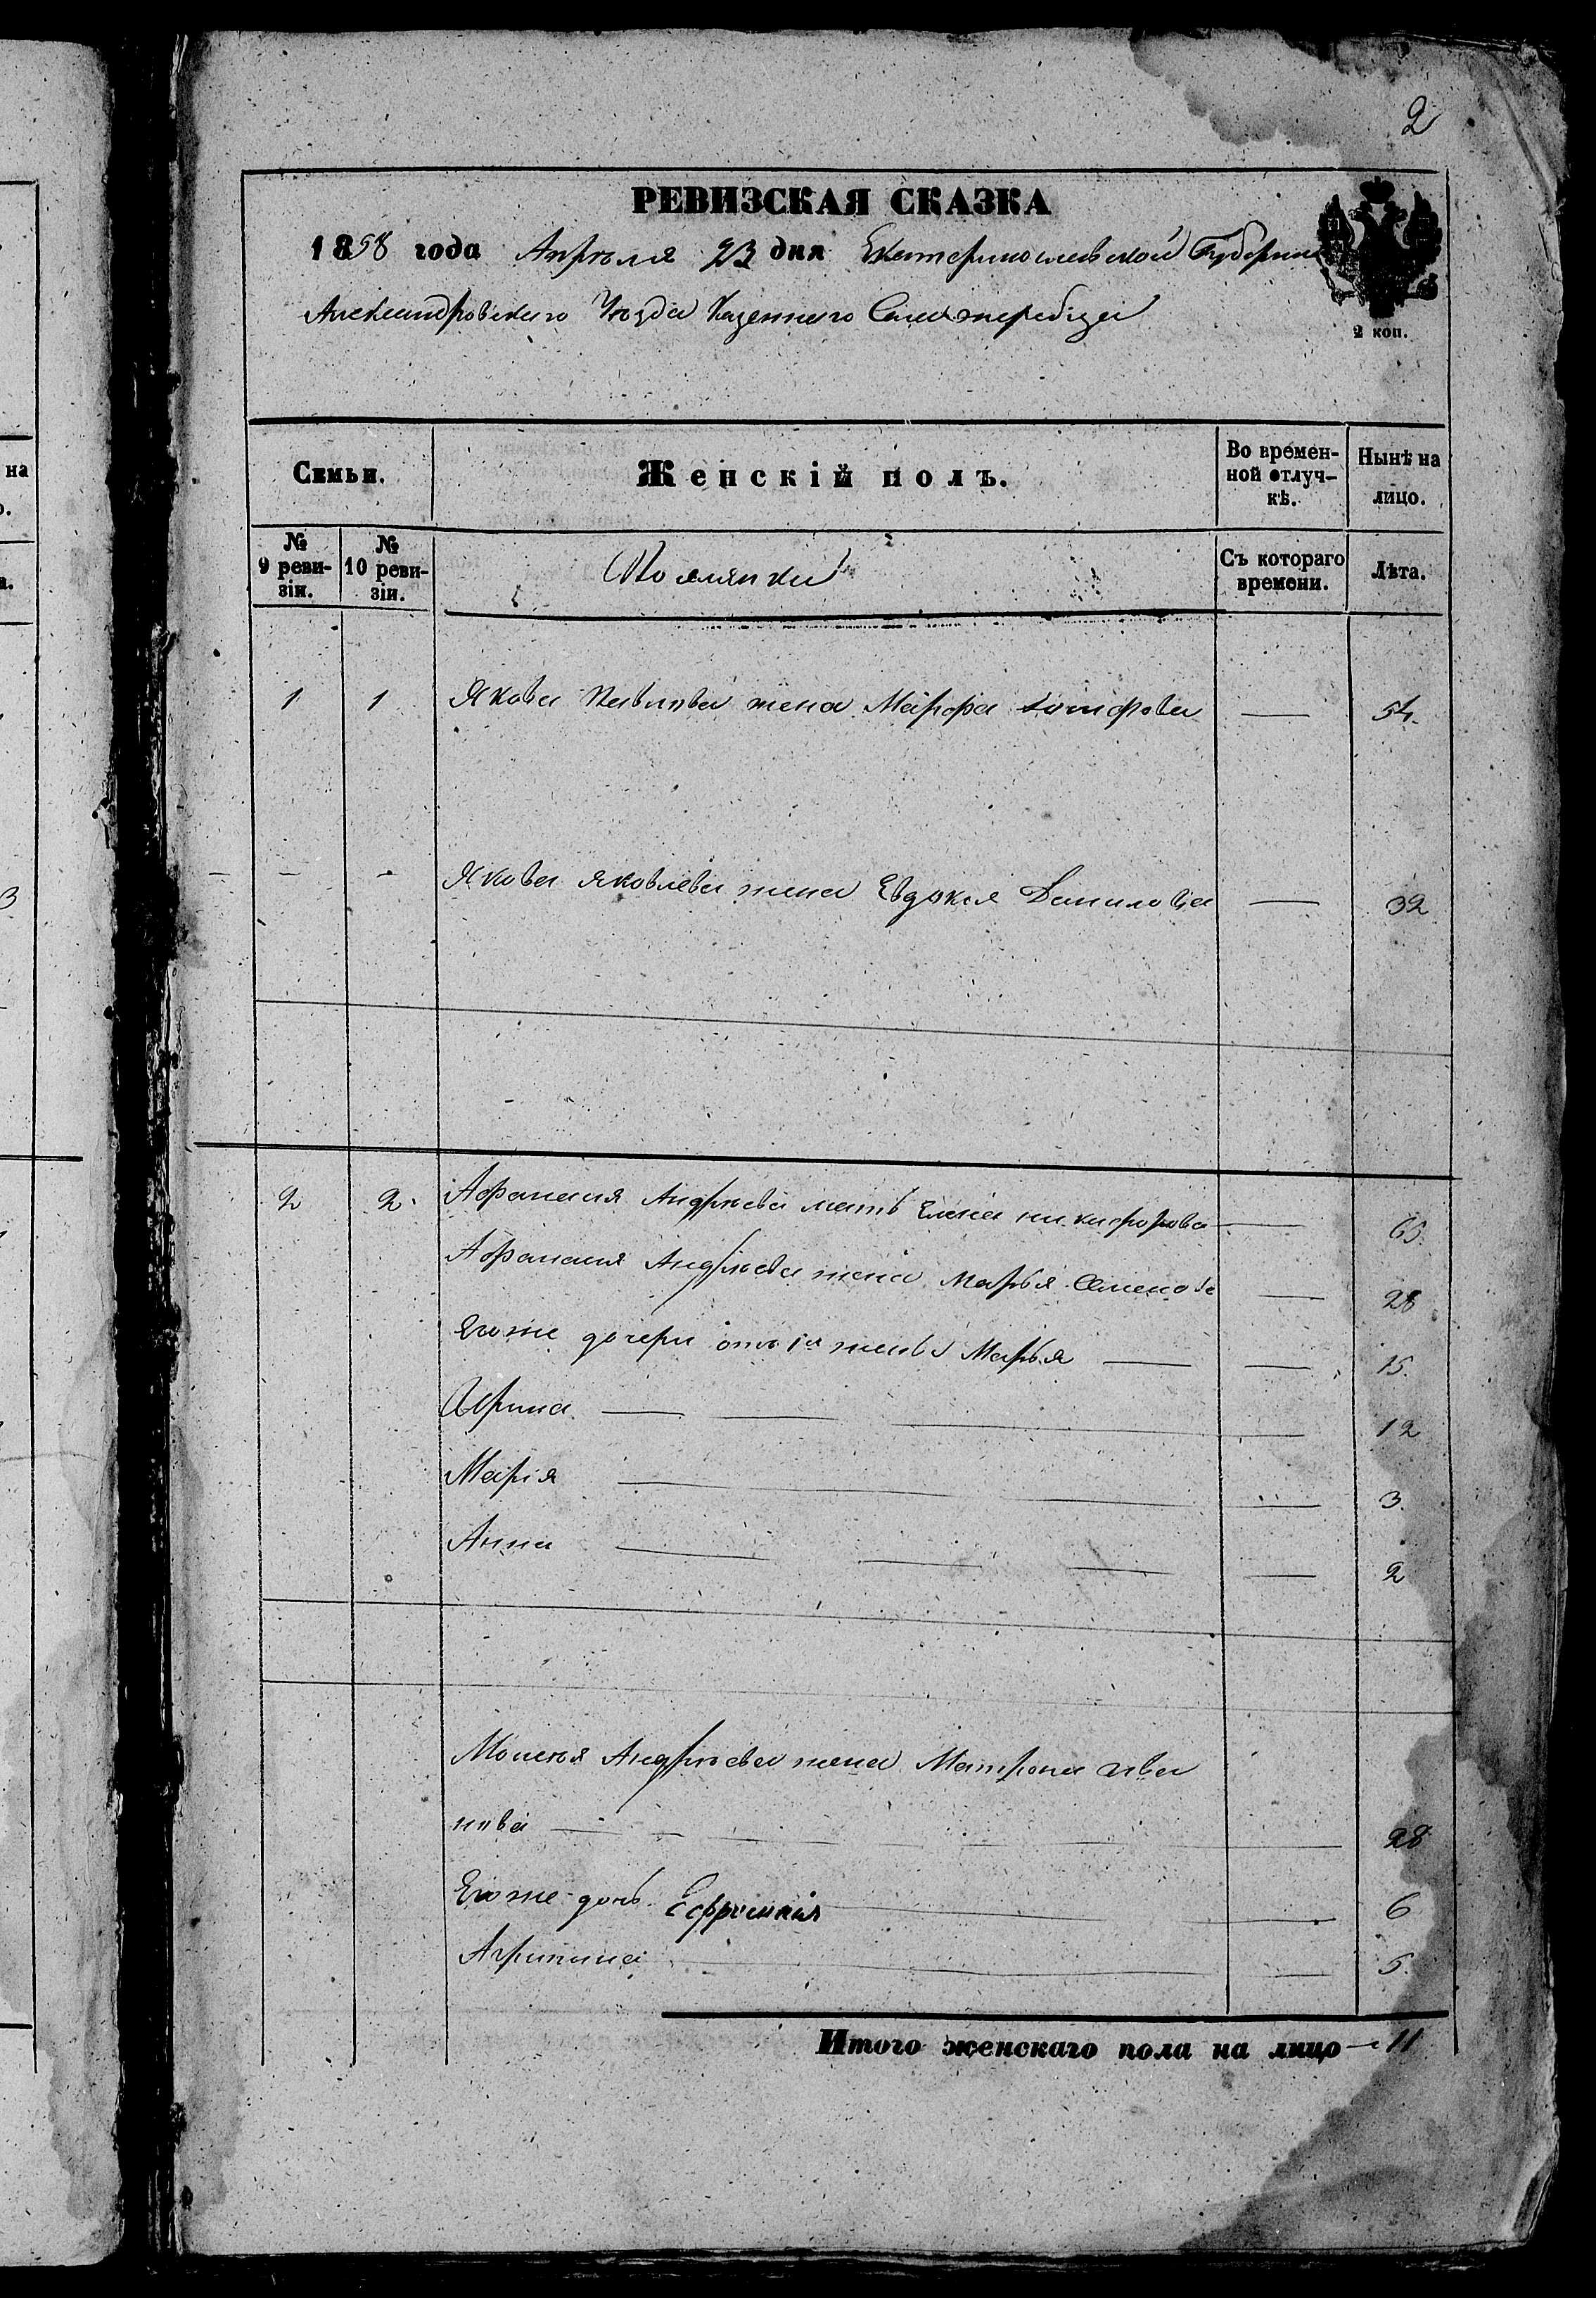 на
о.
а.
3
2
РЕВИЗСКАЯ СКАЗКА
1858 года Апреля 23 дня Екатеринославской Губернии
Александровскаго Уезда Казеннаго Села
2 коп.
Семьи.
Женскій полъ.
Во времен-
ной отлуч-
кѣ.
Нынѣ на
лицо.
№
9 реви-
зіи.
№
10 реви-
зіи.
Поселянки
Съ котораго
времени.
Лѣта.
1 1 Якова жена Марфа — 54.
- - Якова Яковлева жена Евдокія Данилова — 32
2 2. Афанасія Андреева мать Елена Никифорова — 65.
Афанасія Андреева жена Марья Семенова — 28
Его же дочери отъ 1й жены Марья — — 15.
— — — — 12
Марія — — — 3.
Анна — — — — 2
Моисея Андреева жена Матрона Ива
нова — — — — — — 28
Его же дочь Ефросинія — — 6
Агрипина — — 5.
Итого женскаго пола на лицо — 11